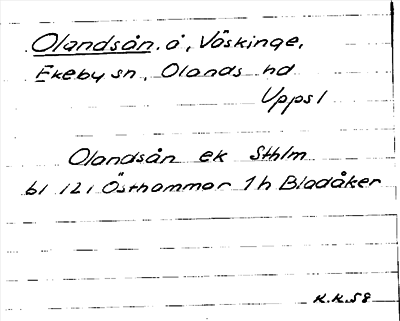 Olandsån. å, Väskinge,
Ekeby sn., Olands hd
Uppsl
Olandsån ek Sthlm
bl 121 Östhammar 1 h Bladåker
K.K.58